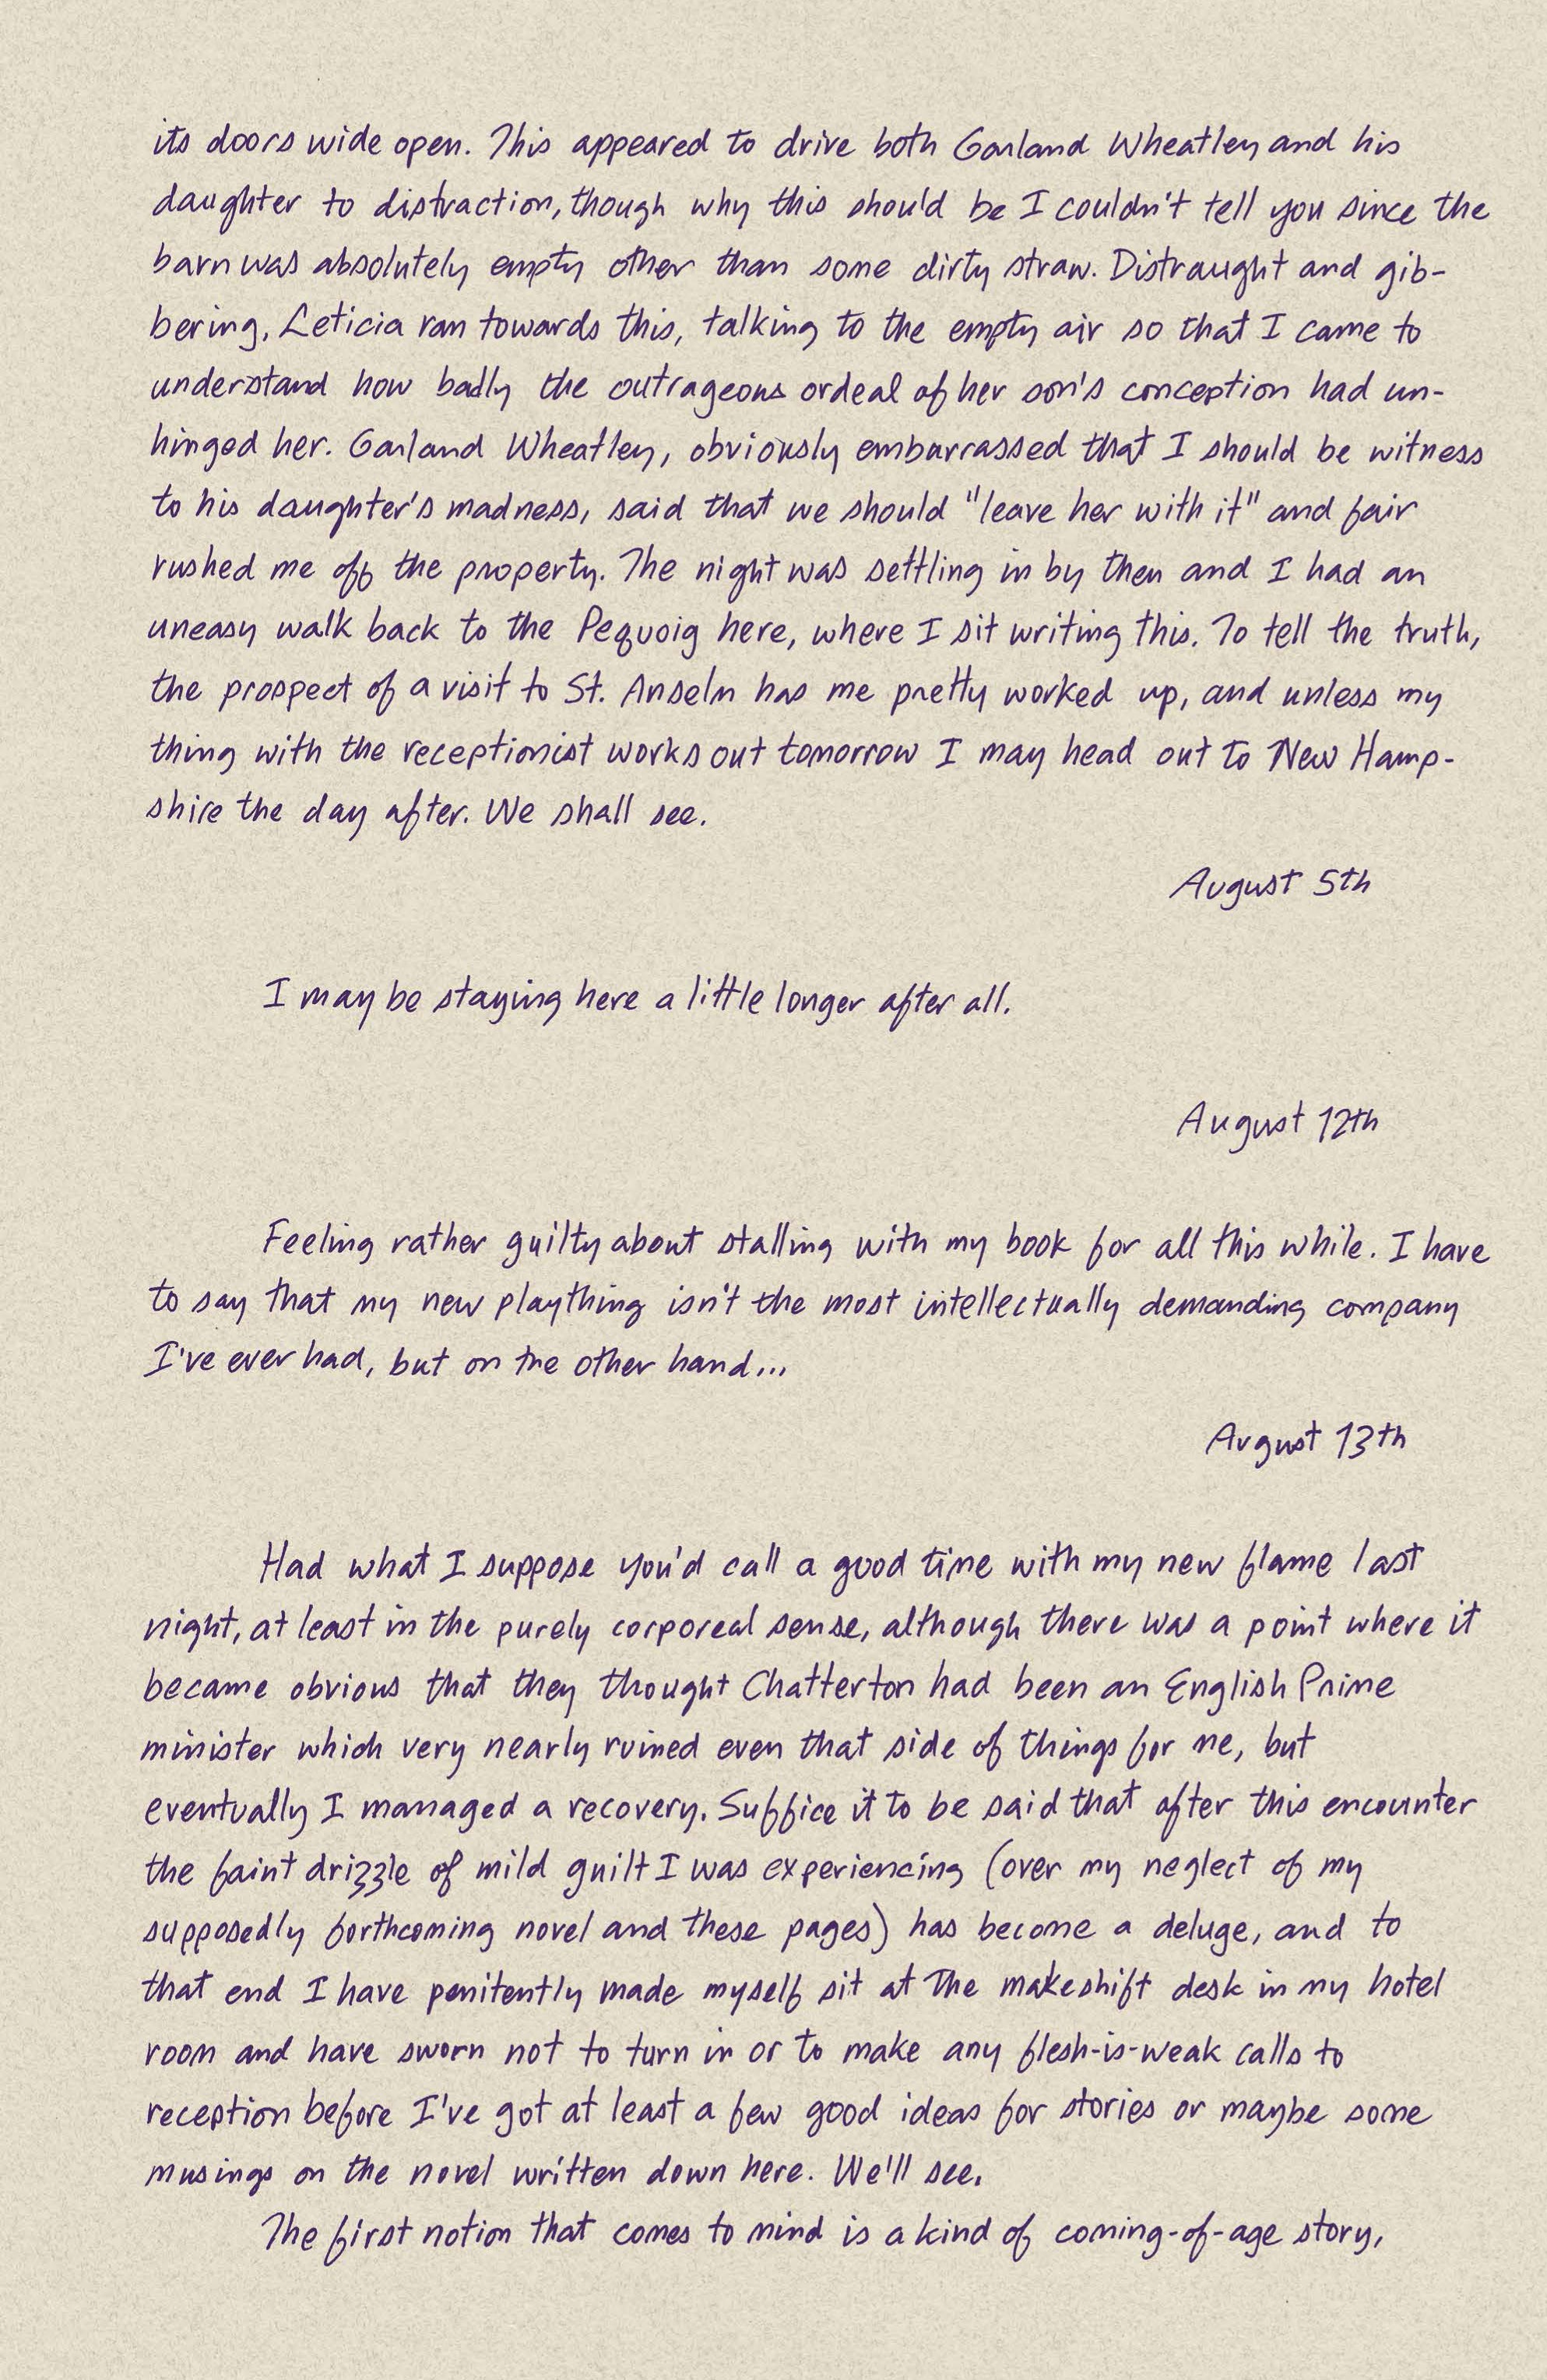 its doors wide open. This appeared to drive both Garland Wheatley and his
daughter to distraction, though why this should be I couldn't tell you since the
barn was absolutely empty other than some dirty straw. Distraught and gib-
bering, Leticia ran towards this, talking to the empty air so that I came to
understand how badly the outrageous ordeal of her son's conception had un-
hinged her. Garland Wheatley, obviously embarrassed that I should be witness
to his daughter's madness, said that we should "leave her with it" and fair
rushed me off the property. The night was settling in by then and I had an
uneasy walk back to the Pequoig here, where I sit writing this. To tell the truth,
the prospect of a visit to St. Anselm has me pretty worked up, and unless my
thing with the receptionist works out tomorrow I may head out to New Hamp-
shire the day after. We shall see.
August 5th
I may be staying here a little longer after all.
August 12th
Feeling rather guilty about stalling with my book for all this while. I have
to say that my new plaything isn't the most intellectually demanding company
I've ever had, but on the other hand...
August 13th
Had what I suppose you'd call a good time with my new flame last
night, at least in the purely corporeal sense, although there was a point where it
became obvious that they thought Chatterton had been an English Prime
minister which very nearly ruined even that side of things for me, but
eventually I managed a recovery. Suffice it to be said that after this encounter
the faint drizzle of mild guilt I was experiencing (over my neglect of my
supposedly forthcoming novel and these pages) has become a deluge, and to
that end I have penitently made myself sit at the makeshift desk in my hotel
room and have sworn not to turn in or to make any flesh-is-weak calls to
reception before I've got at least a few good ideas for stories or maybe some
musings on the novel written down here. We'll see.
The first notion that comes to mind is a kind of coming-of-age story,